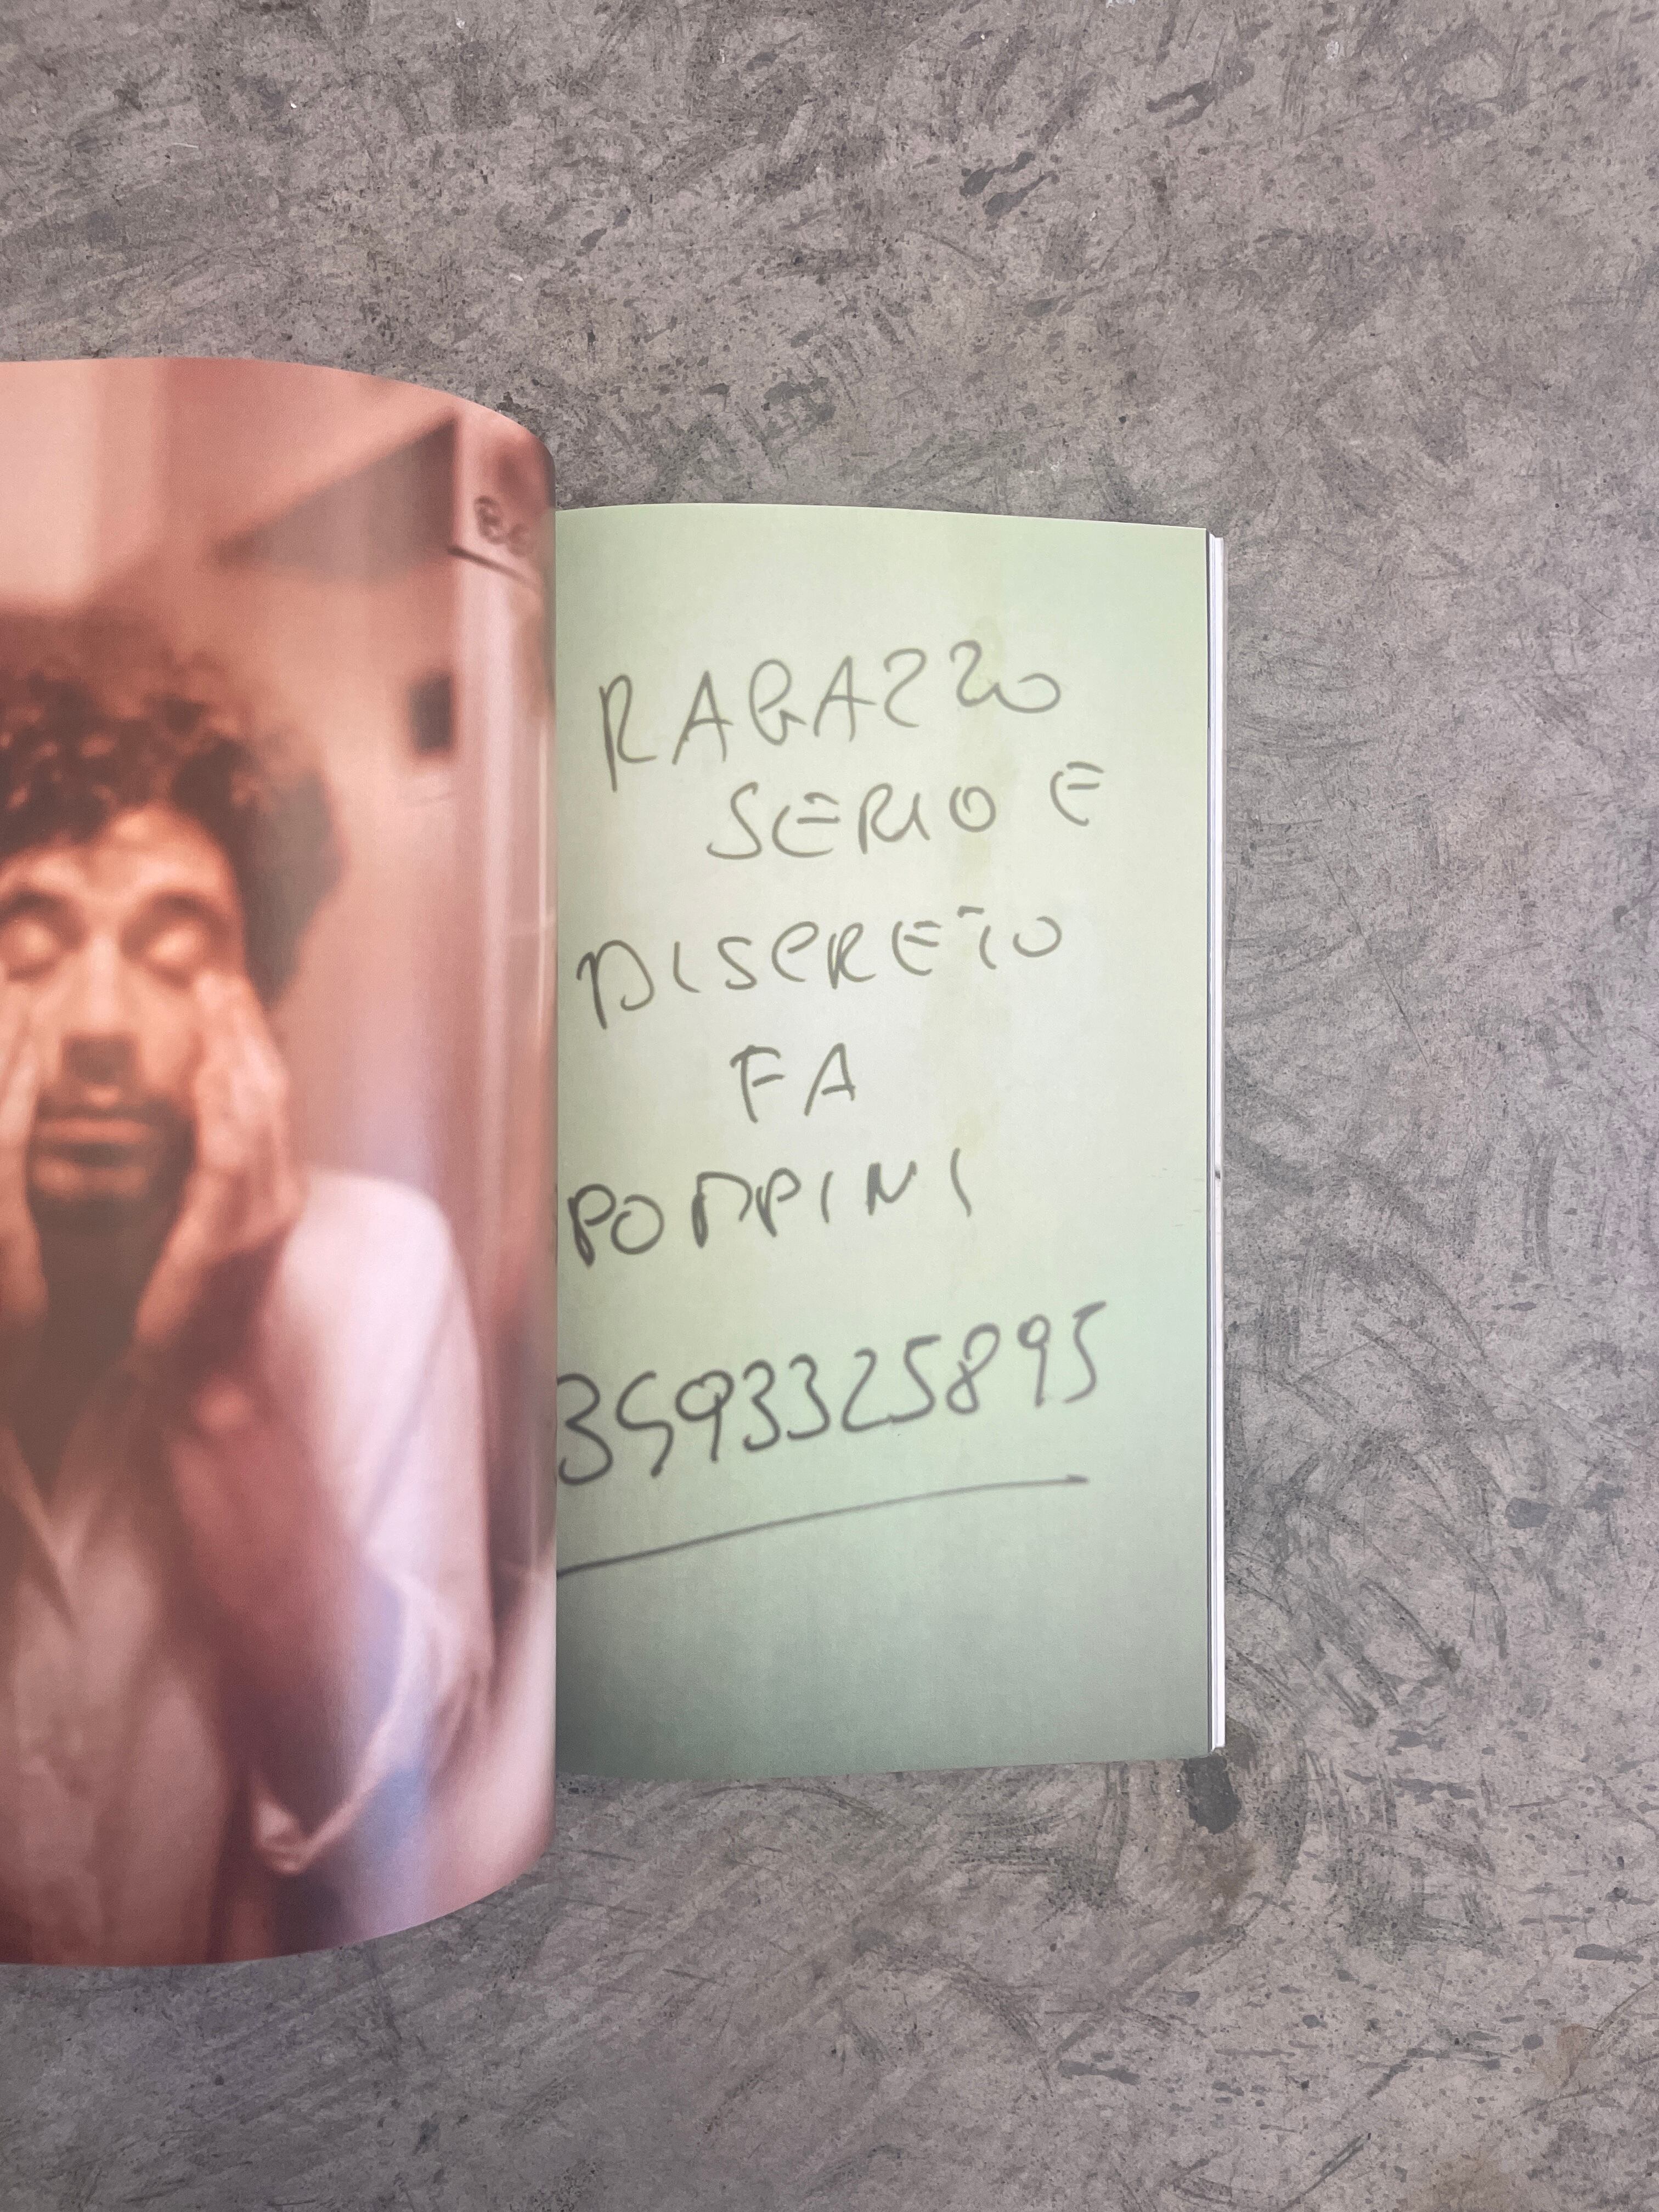 RAGAZZO
SERIO E
DISCRETO
FA
POMPINI
3593325895